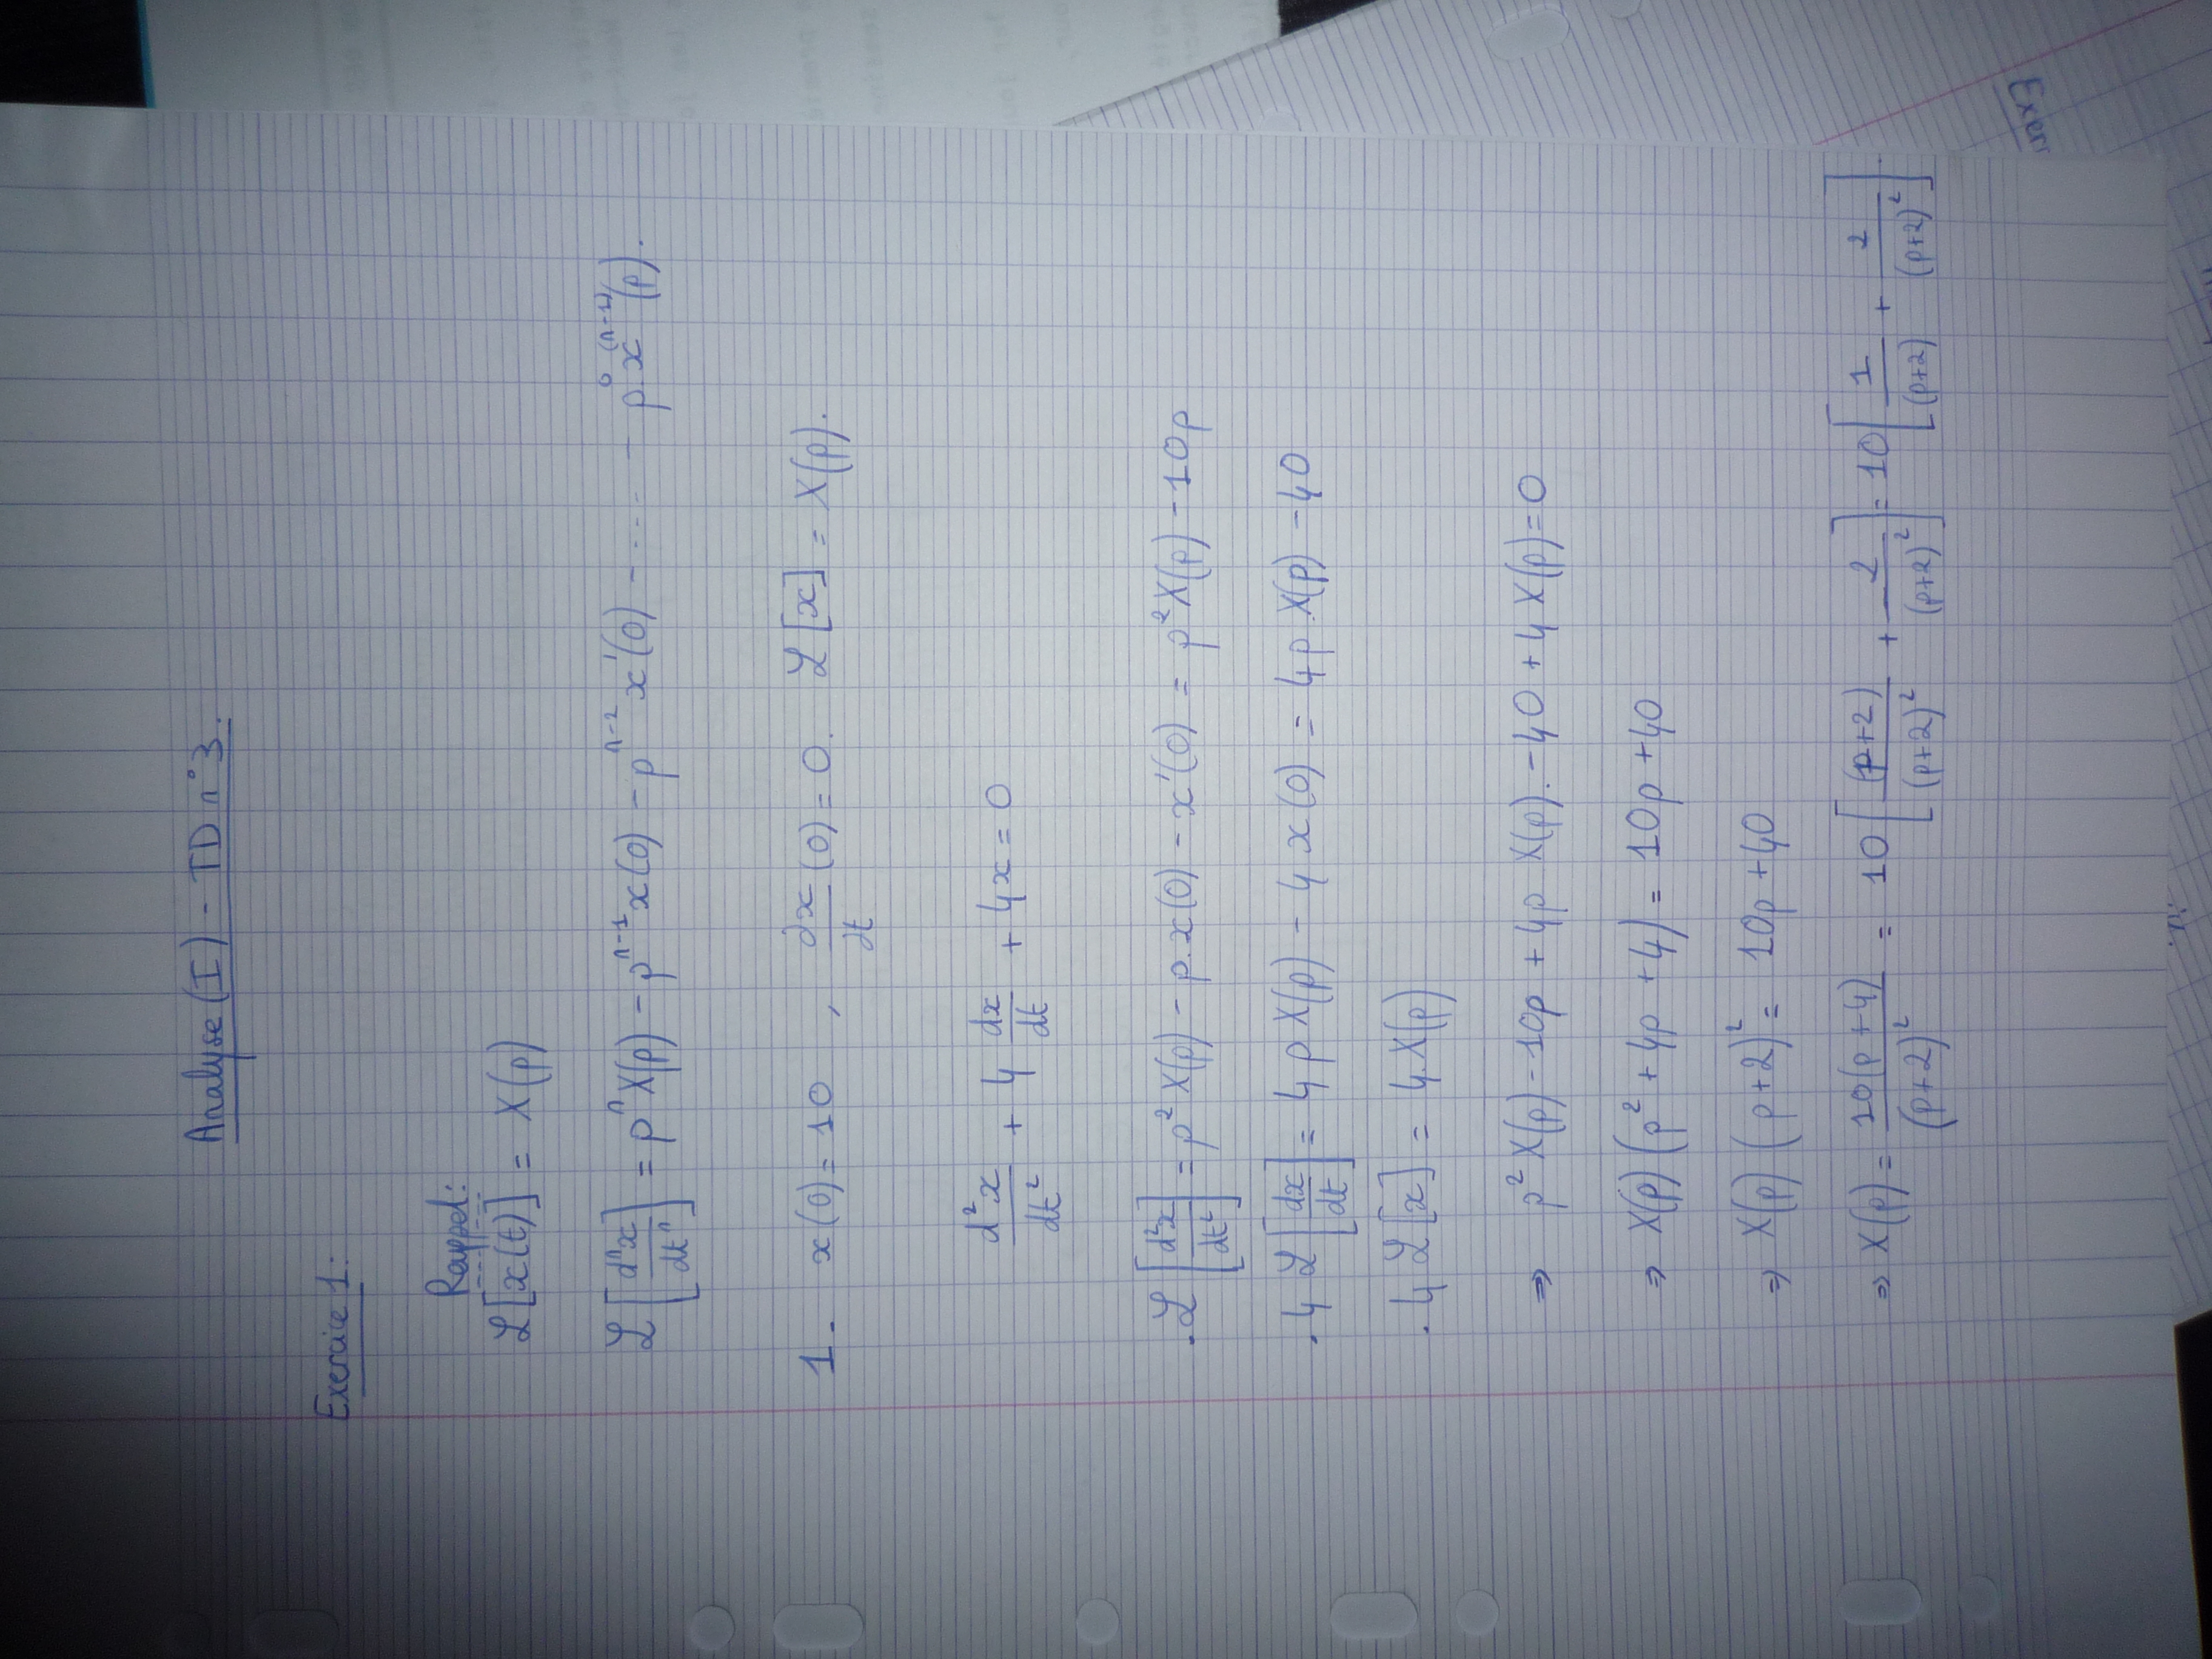 Analyse (I) - TD n°3.
Exercice 1:
Rappel:
ℒ[x(t)] = X(p)
ℒ[dⁿx/dtⁿ] = pⁿX(p) - pⁿ⁻¹x(0) - pⁿ⁻²x'(0) - .... - p⁰x⁽ⁿ⁻¹⁾(p).
1- x(0) = 10 , dx/dt (0) = 0. ℒ[x] = X(p).
d²x/dt² + 4 dx/dt + 4x = 0
. ℒ[d²x/dt²] = p² X(p) - p.x(0) - x'(0) = p² X(p) - 10p
. 4 ℒ[dx/dt] = 4 p X(p) - 4 x(0) = 4p.X(p) - 40
. 4 ℒ[x] = 4.X(p)
⇒ p² X(p) - 10p + 4p X(p). - 40 + 4 X(p) = 0
⇒ X(p) (p² + 4p + 4) = 10p + 40
⇒ X(p) (p+2)² = 10p + 40
⇒ X(p) = 10(p+4)/(p+2)² = 10[(p+2)/(p+2)² + 2/(p+2)²] = 10[1/(p+2) + 2/(p+2)²].
Exer